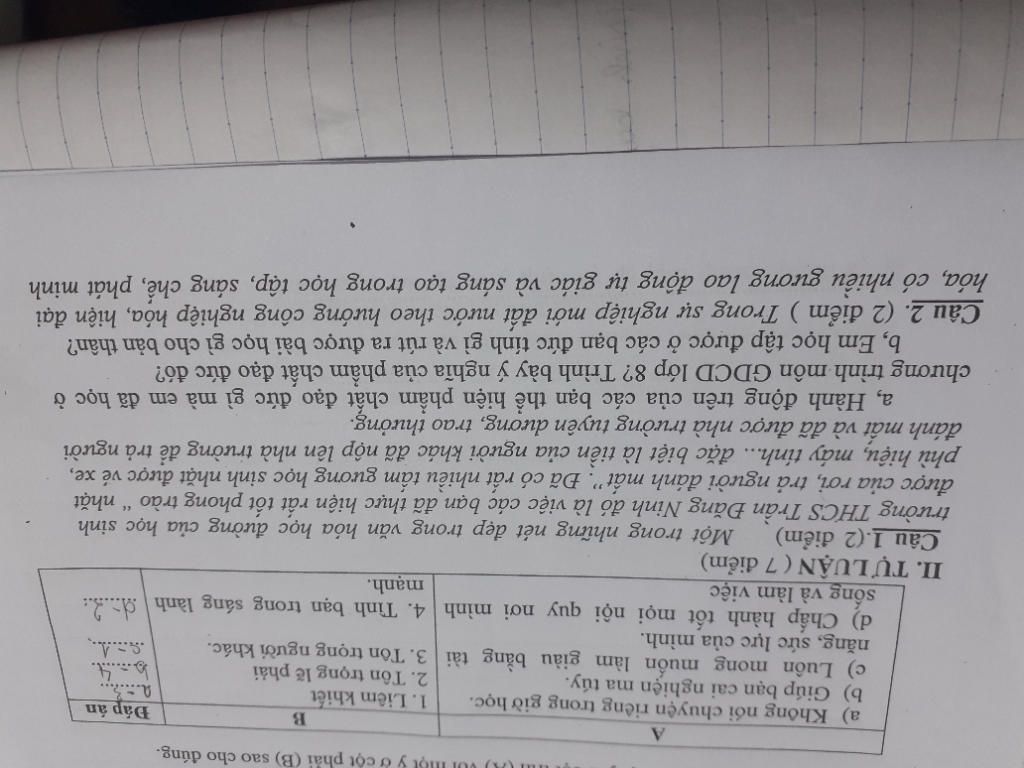 (A) với một ý ở cột phải (B) sao cho đúng.
A
B
Đáp án
a) Không nói chuyện riêng trong giờ học.
b) Giúp bạn cai nghiện ma túy.
c) Luôn mong muốn làm giàu bằng tài
năng, sức lực của mình.
d) Chấp hành tốt mọi nội quy nơi mình
sống và làm việc
1. Liêm khiết
2. Tôn trọng lẽ phải
3. Tôn trọng người khác.
4. Tình bạn trong sáng lành
mạnh.
a-3
b-4
c-1
d-2
II. TỰ LUẬN ( 7 điểm)
Câu 1.(2 điểm) Một trong những nét đẹp trong văn hóa học đường của học sinh
trường THCS Trần Đăng Ninh đó là việc các bạn đã thực hiện rất tốt phong trào " nhặt
được của rơi, trả người đánh mất". Đã có rất nhiều tấm gương học sinh nhặt được vé xe,
phù hiệu, máy tính... đặc biệt là tiền của người khác đã nộp lên nhà trường để trả người
đánh mất và đã được nhà trường tuyên dương, trao thưởng.
a, Hành động trên của các bạn thể hiện phẩm chất đạo đức gì mà em đã học ở
chương trình môn GDCD lớp 8? Trình bày ý nghĩa của phẩm chất đạo đức đó?
b, Em học tập được ở các bạn đức tính gì và rút ra được bài học gì cho bản thân?
Câu 2. (2 điểm ) Trong sự nghiệp mới đất nước theo hướng công nghiệp hóa, hiện đại
hóa, có nhiều gương lao động tự giác và sáng tạo trong học tập, sáng chế, phát minh